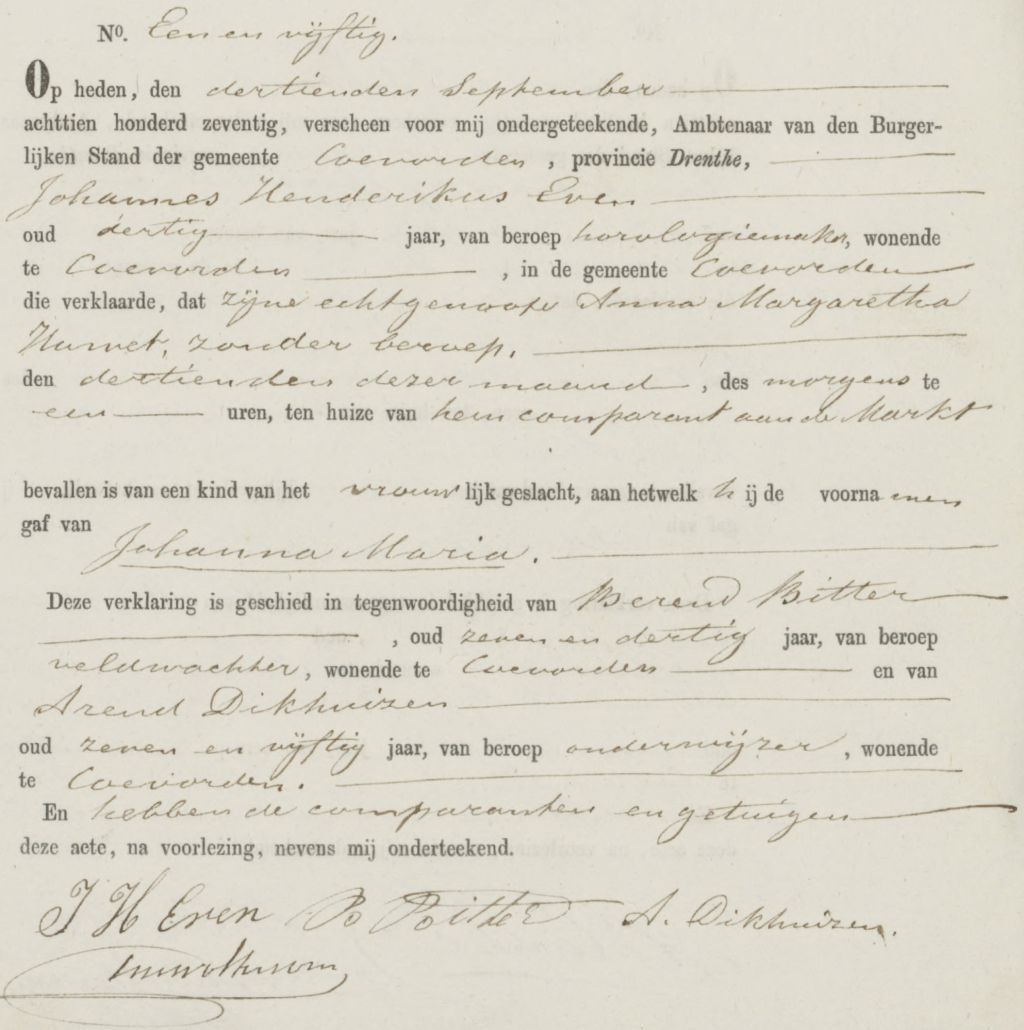 No. Een en vijftig.
Op heden, den dertienden September
achttien honderd zeventig, verscheen voor mij ondergeteekende, Ambtenaar van den Burger-
lijken Stand der gemeente Coevorden, provincie Drenthe,
Johannes Henderikus Even
oud dertig jaar, van beroep horologiemaker, wonende
te Coevorden, in de gemeente Coevorden
die verklaarde, dat zijne echtgenoote Anna Margaretha
zonder beroep.
den dertienden dezer maand, des morgens te
een uren, ten huize van hem comparant aan de Markt
bevallen is van een kind van het vrouwlijk geslacht, aan hetwelk hij de voornamen
gaf van
Johanna Maria.
Deze verklaring is geschied in tegenwoordigheid van Berend Bitter
, oud zeven en dertig jaar, van beroep
veldwachter, wonende te Coevorden en van
Arend Dikhuizen
oud zeven en vijftig jaar, van beroep onderwijzer, wonende
te Coevorden.
En hebben de comparanten en getuigen
deze acte, na voorlezing, nevens mij onderteekend.
J H Even B Bitter A. Dikhuizen.